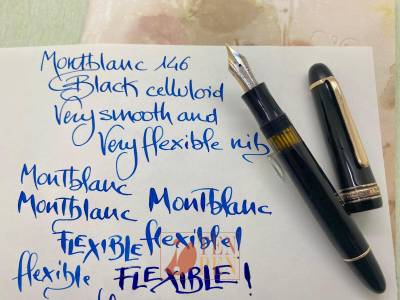 Montblanc 146
Black celluloid
Very smooth and
Very flexible nib
Montblanc
Montblanc Montblanc
FLEXIBLE flexible!
flexible FLEXIBLE!
PEN
DEN